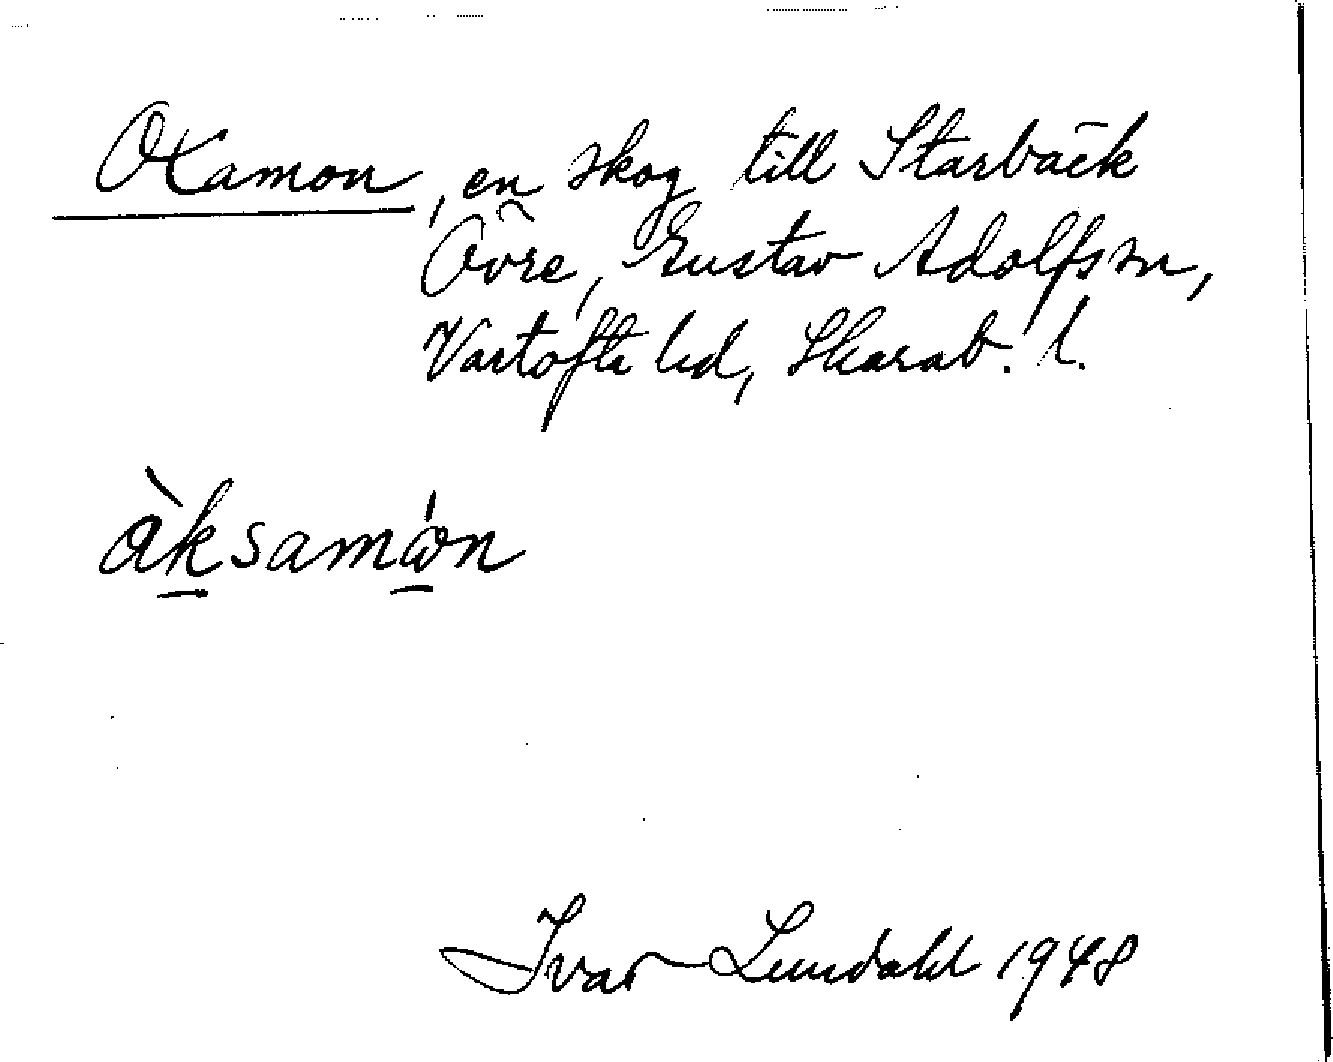 Oxamon, en skog till Starbäck
Övre, Gustav Adolfs sn,
Vartofta hd, Skarab. l.
àksamón
Ivar Lundahl 1948